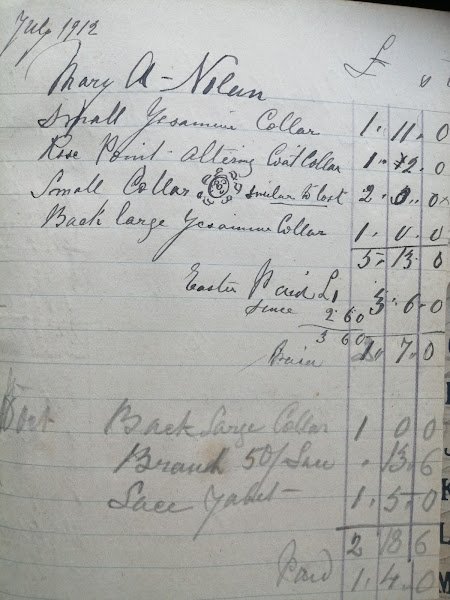 July 1912
£ s
Mary A - Nolan
Small Yesamine Collar 1 " 11 " 0
Rose Point altering Coat Collar 1 " 2 " 0
Small Collar similar to last 2 " 0 " 0
Back large Yesamine Collar 1 " 0 " 0
5 " 13 " 0
Easter Paid £1
since 2 6 0 3 " 6 " 0
3 6 0
1 " 7 " 0
Oct Back Large Collar 1 0 0
Branch 50/ Lace " 13 " 6
Lace 1 " 5 " 0
2 18 6
Paid 1 " 4 " 0
K
L
M